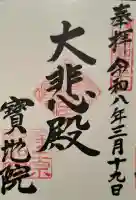 奉拝 令和八年三月十九日
大悲殿
寶地院